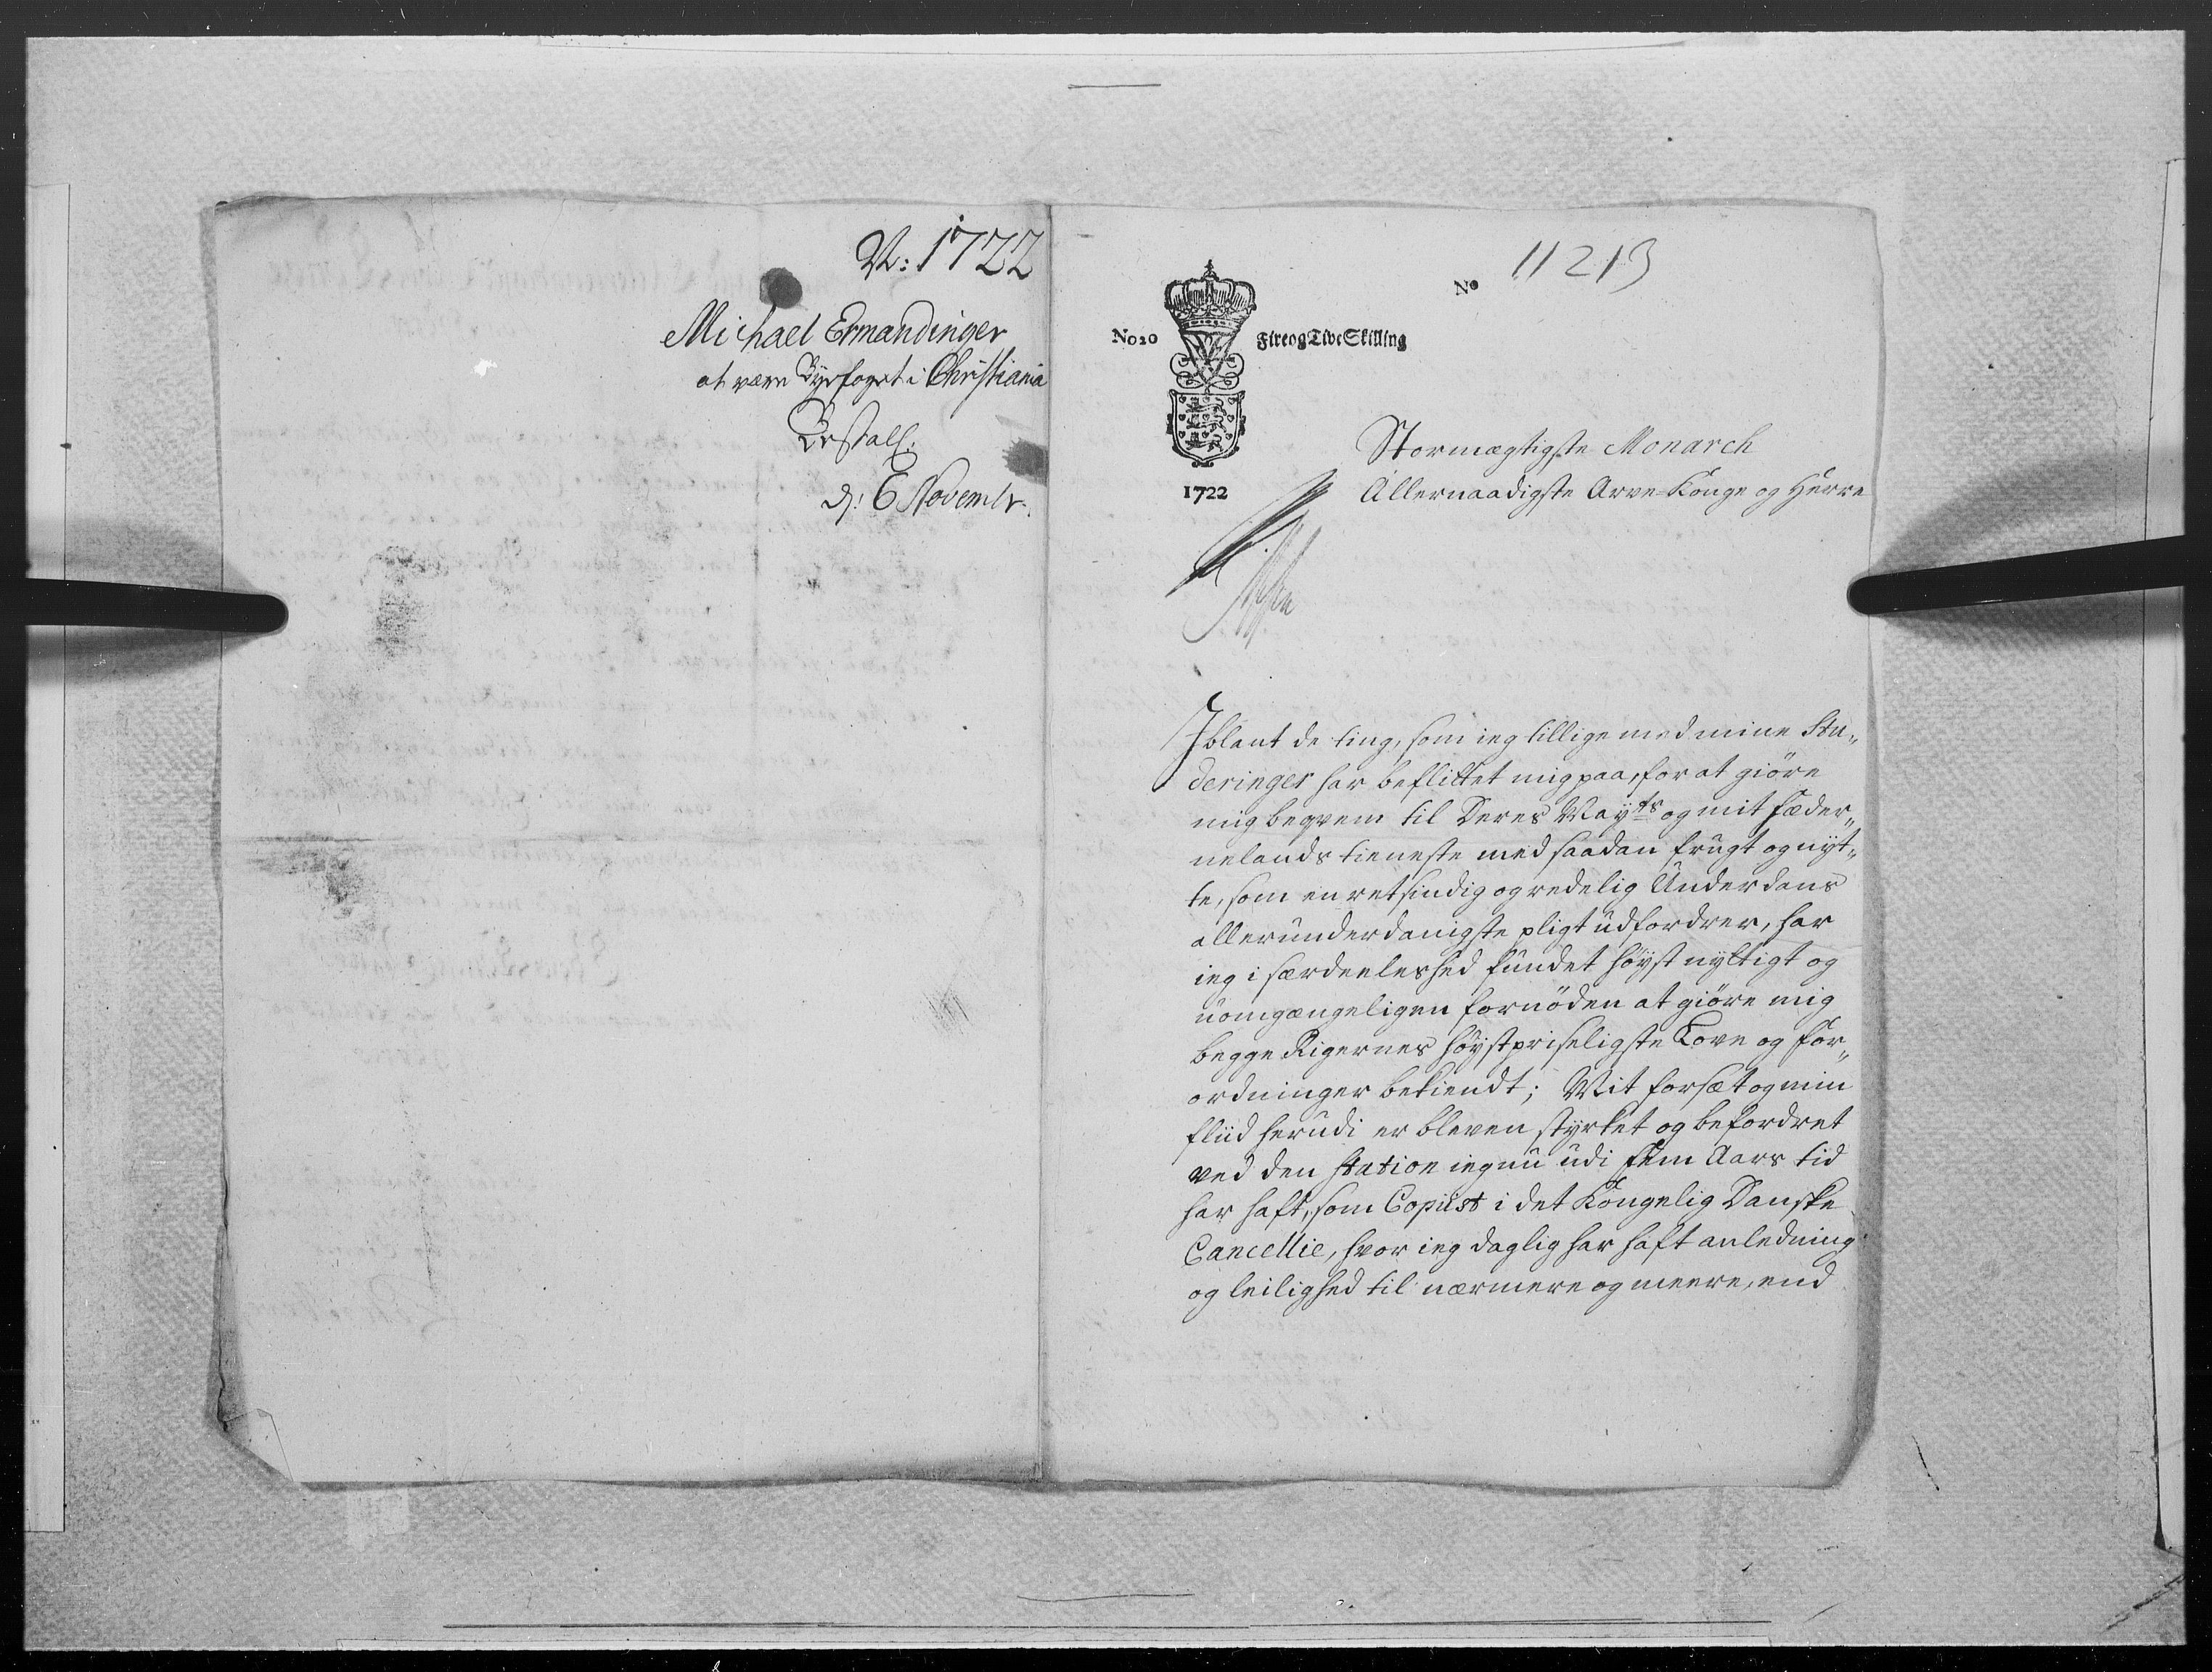 N: 1722
Michael Ermandinger
at være Byefoget i Christiania
Bestall.
d: 6 Novembr.
No 20
Fire og Tive Skilling
1722
No 11213
Stormægtigste Monarch
Allernaadigste Arve-Konge og Herre
Iblant de ting, som ieg tillige med mine Stu„
deringer har beflittet mig paa, for at giöre
mig beqvem til Deres Mayts og mit Fæder„
nelands tieneste med saadan frugt og nyt„
te, som en retsindig og redelig Underdans
allerunderdanigste pligt udfordrer, har
ieg i særdeeleshed fundet höyst nyttigt og
uomgængeligen fornöden at giöre mig
begge Rigernes höystpriseligste Love og For„
ordninger bekiendt; Mit forsæt og min
fliid herudi er bleven styrket og befordret
ved den Station ieg nu udi fem Aars tid
har haft, som Copiist i det Kongelig Danske
Cancellie, hvor ieg daglig har haft anledning
og leilighed til nærmere og meere, end